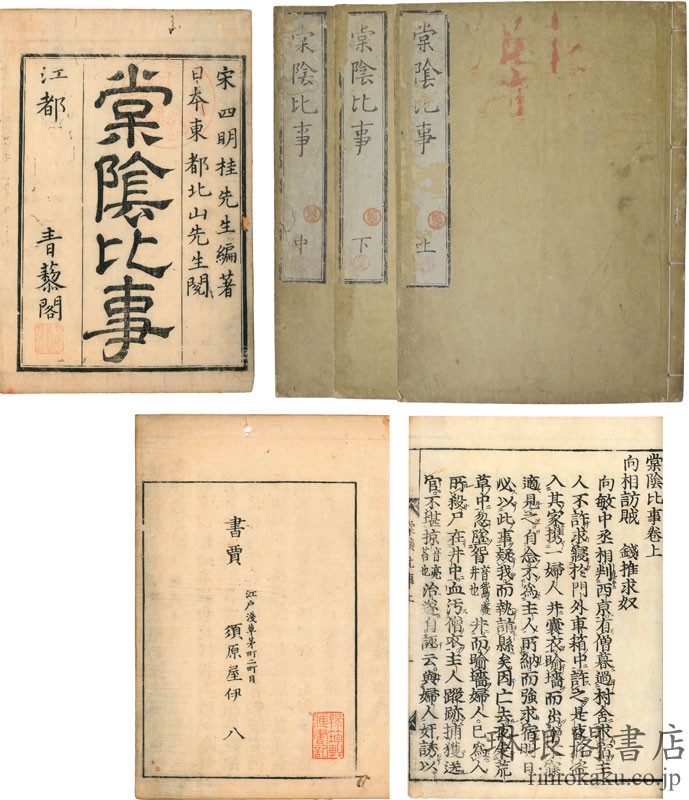 宋 四明桂先生編著
日本東都北山先生閲
棠陰比事
江都 青藜閣
棠陰比事 上
棠陰比事 下
棠陰比事 中
棠陰比事卷上
向相訪賊 錢推求奴
向敏中丞相判西京有僧暮過村舍求宿主
人不許求寢於門外車箱中許之是夜有盗
入其家携一婦人并囊衣踰墻而出僧不寐
適見之自念不為主人所納而強求宿明日
必以此事疑我而執詣縣矣因亡去夜走荒
草中忽墮眢井而踰墻婦人已為人
所殺尸在井中血汚僧衣主人蹤跡捕獲送
官不堪掠治遂自誣云與婦人奸誘以
書賈
江戸淺草茅町二町目
須原屋伊八
琳琅閣書店
rinrokaku.co.jp